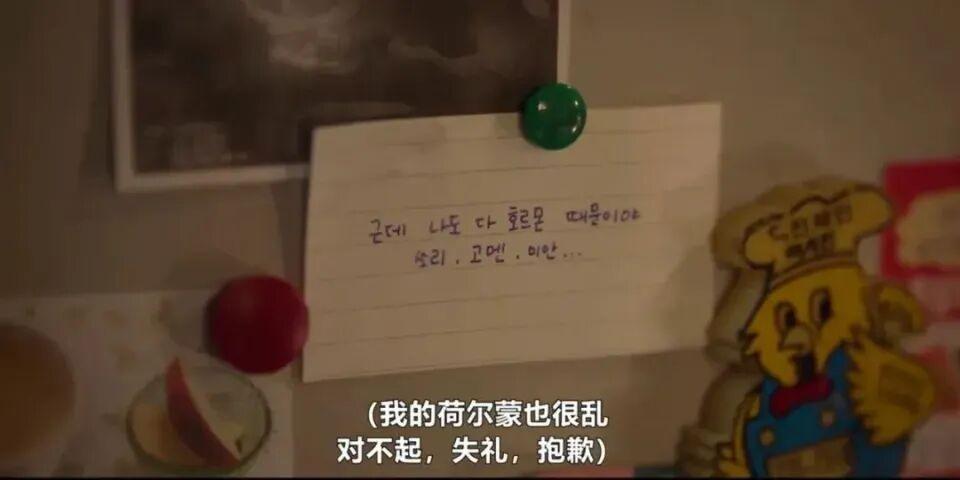 근데 나도 다 호르몬 때문이야
쏘리. 고멘. 미안...
（我的荷尔蒙也很乱
对不起，失礼，抱歉）